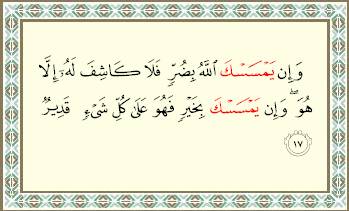 وَإِن يَمْسَسْكَ ٱللَّهُ بِضُرٍّ فَلَا كَاشِفَ لَهُۥٓ إِلَّا
هُوَ ۖ وَإِن يَمْسَسْكَ بِخَيْرٍ فَهُوَ عَلَىٰ كُلِّ شَىْءٍ قَدِيرٌ
١٧